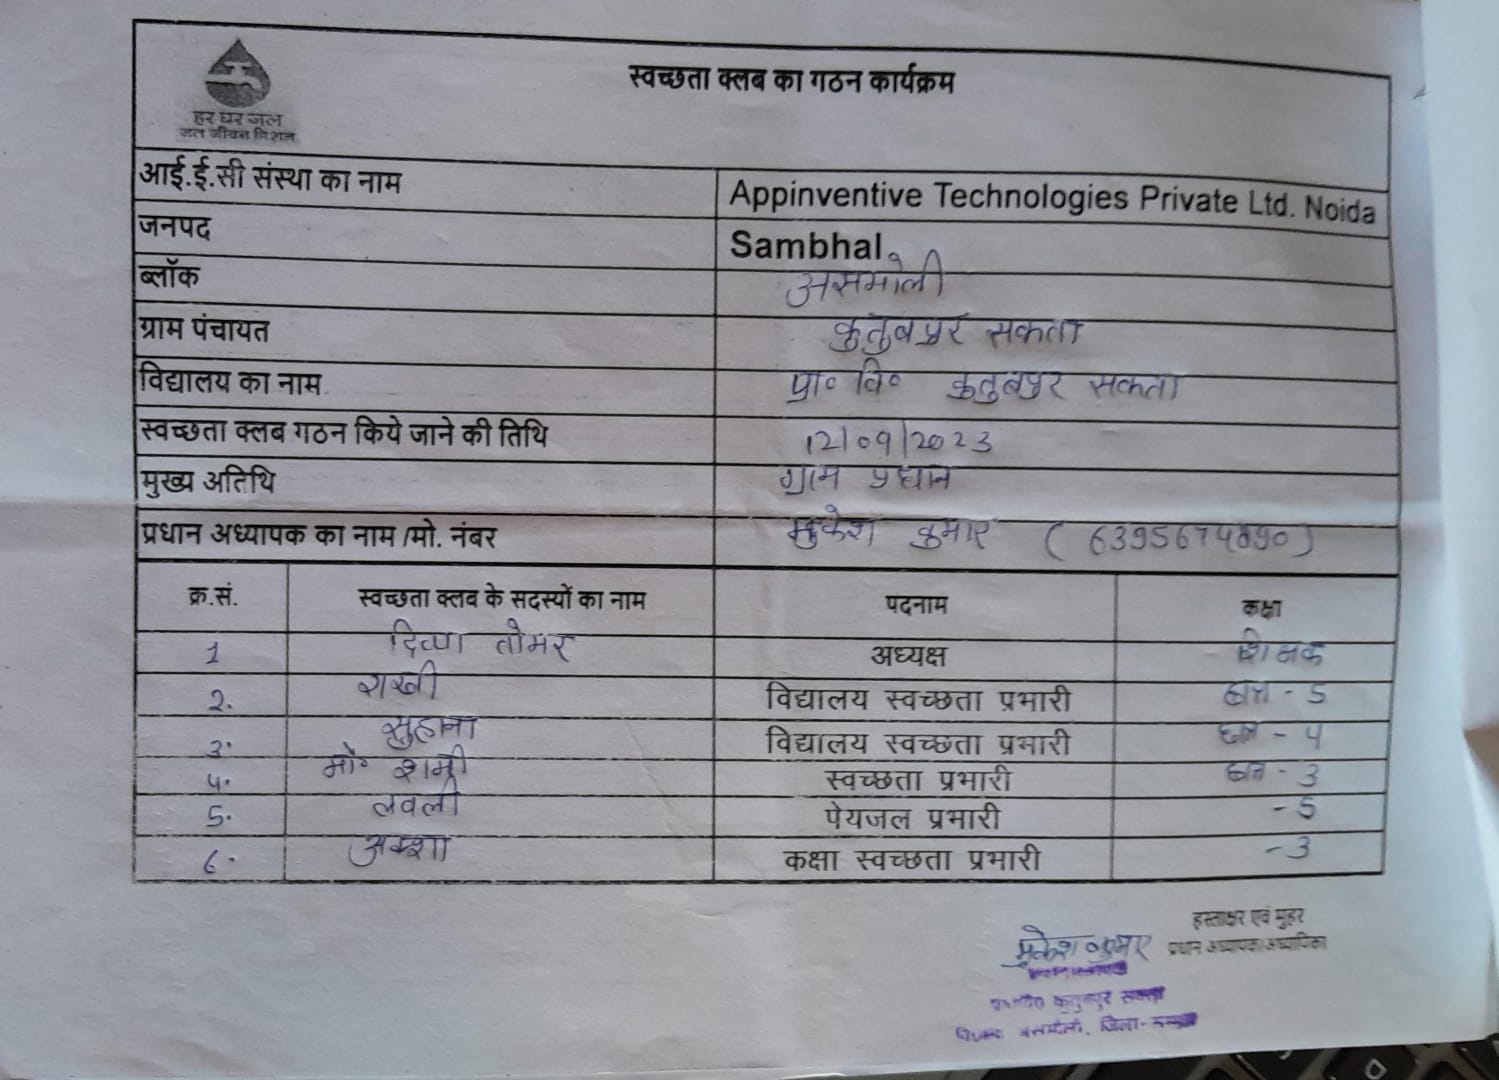 स्वच्छता क्लब का गठन कार्यक्रम
हर घर जल
जल जीवन मिशन
आई.ई.सी संस्था का नाम Appinventive Technologies Private Ltd. Noida
जनपद Sambhal
ब्लॉक असमोली
ग्राम पंचायत कुतुबपुर सकता
विद्यालय का नाम प्रा० वि० कुतुबपुर सकता
स्वच्छता क्लब गठन किये जाने की तिथि 12/09/2023
मुख्य अतिथि ग्राम प्रधान
प्रधान अध्यापक का नाम /मो. नंबर मुकेश कुमार
क्र.सं. स्वच्छता क्लब के सदस्यों का नाम पदनाम कक्षा
1 दिव्या तोमर अध्यक्ष शिक्षक
2. राखी विद्यालय स्वच्छता प्रभारी छात्र - 5
3. सुहाना विद्यालय स्वच्छता प्रभारी छात्र - 4
4. मो० शमी स्वच्छता प्रभारी छात्र - 3
5. लवली पेयजल प्रभारी - 5
6. अक्शा कक्षा स्वच्छता प्रभारी - 3
हस्ताक्षर एवं मुहर
मुकेश कुमार प्रधान अध्यापक/अध्यापिका
कुतुबपुर सकता
असमोली, जिला-